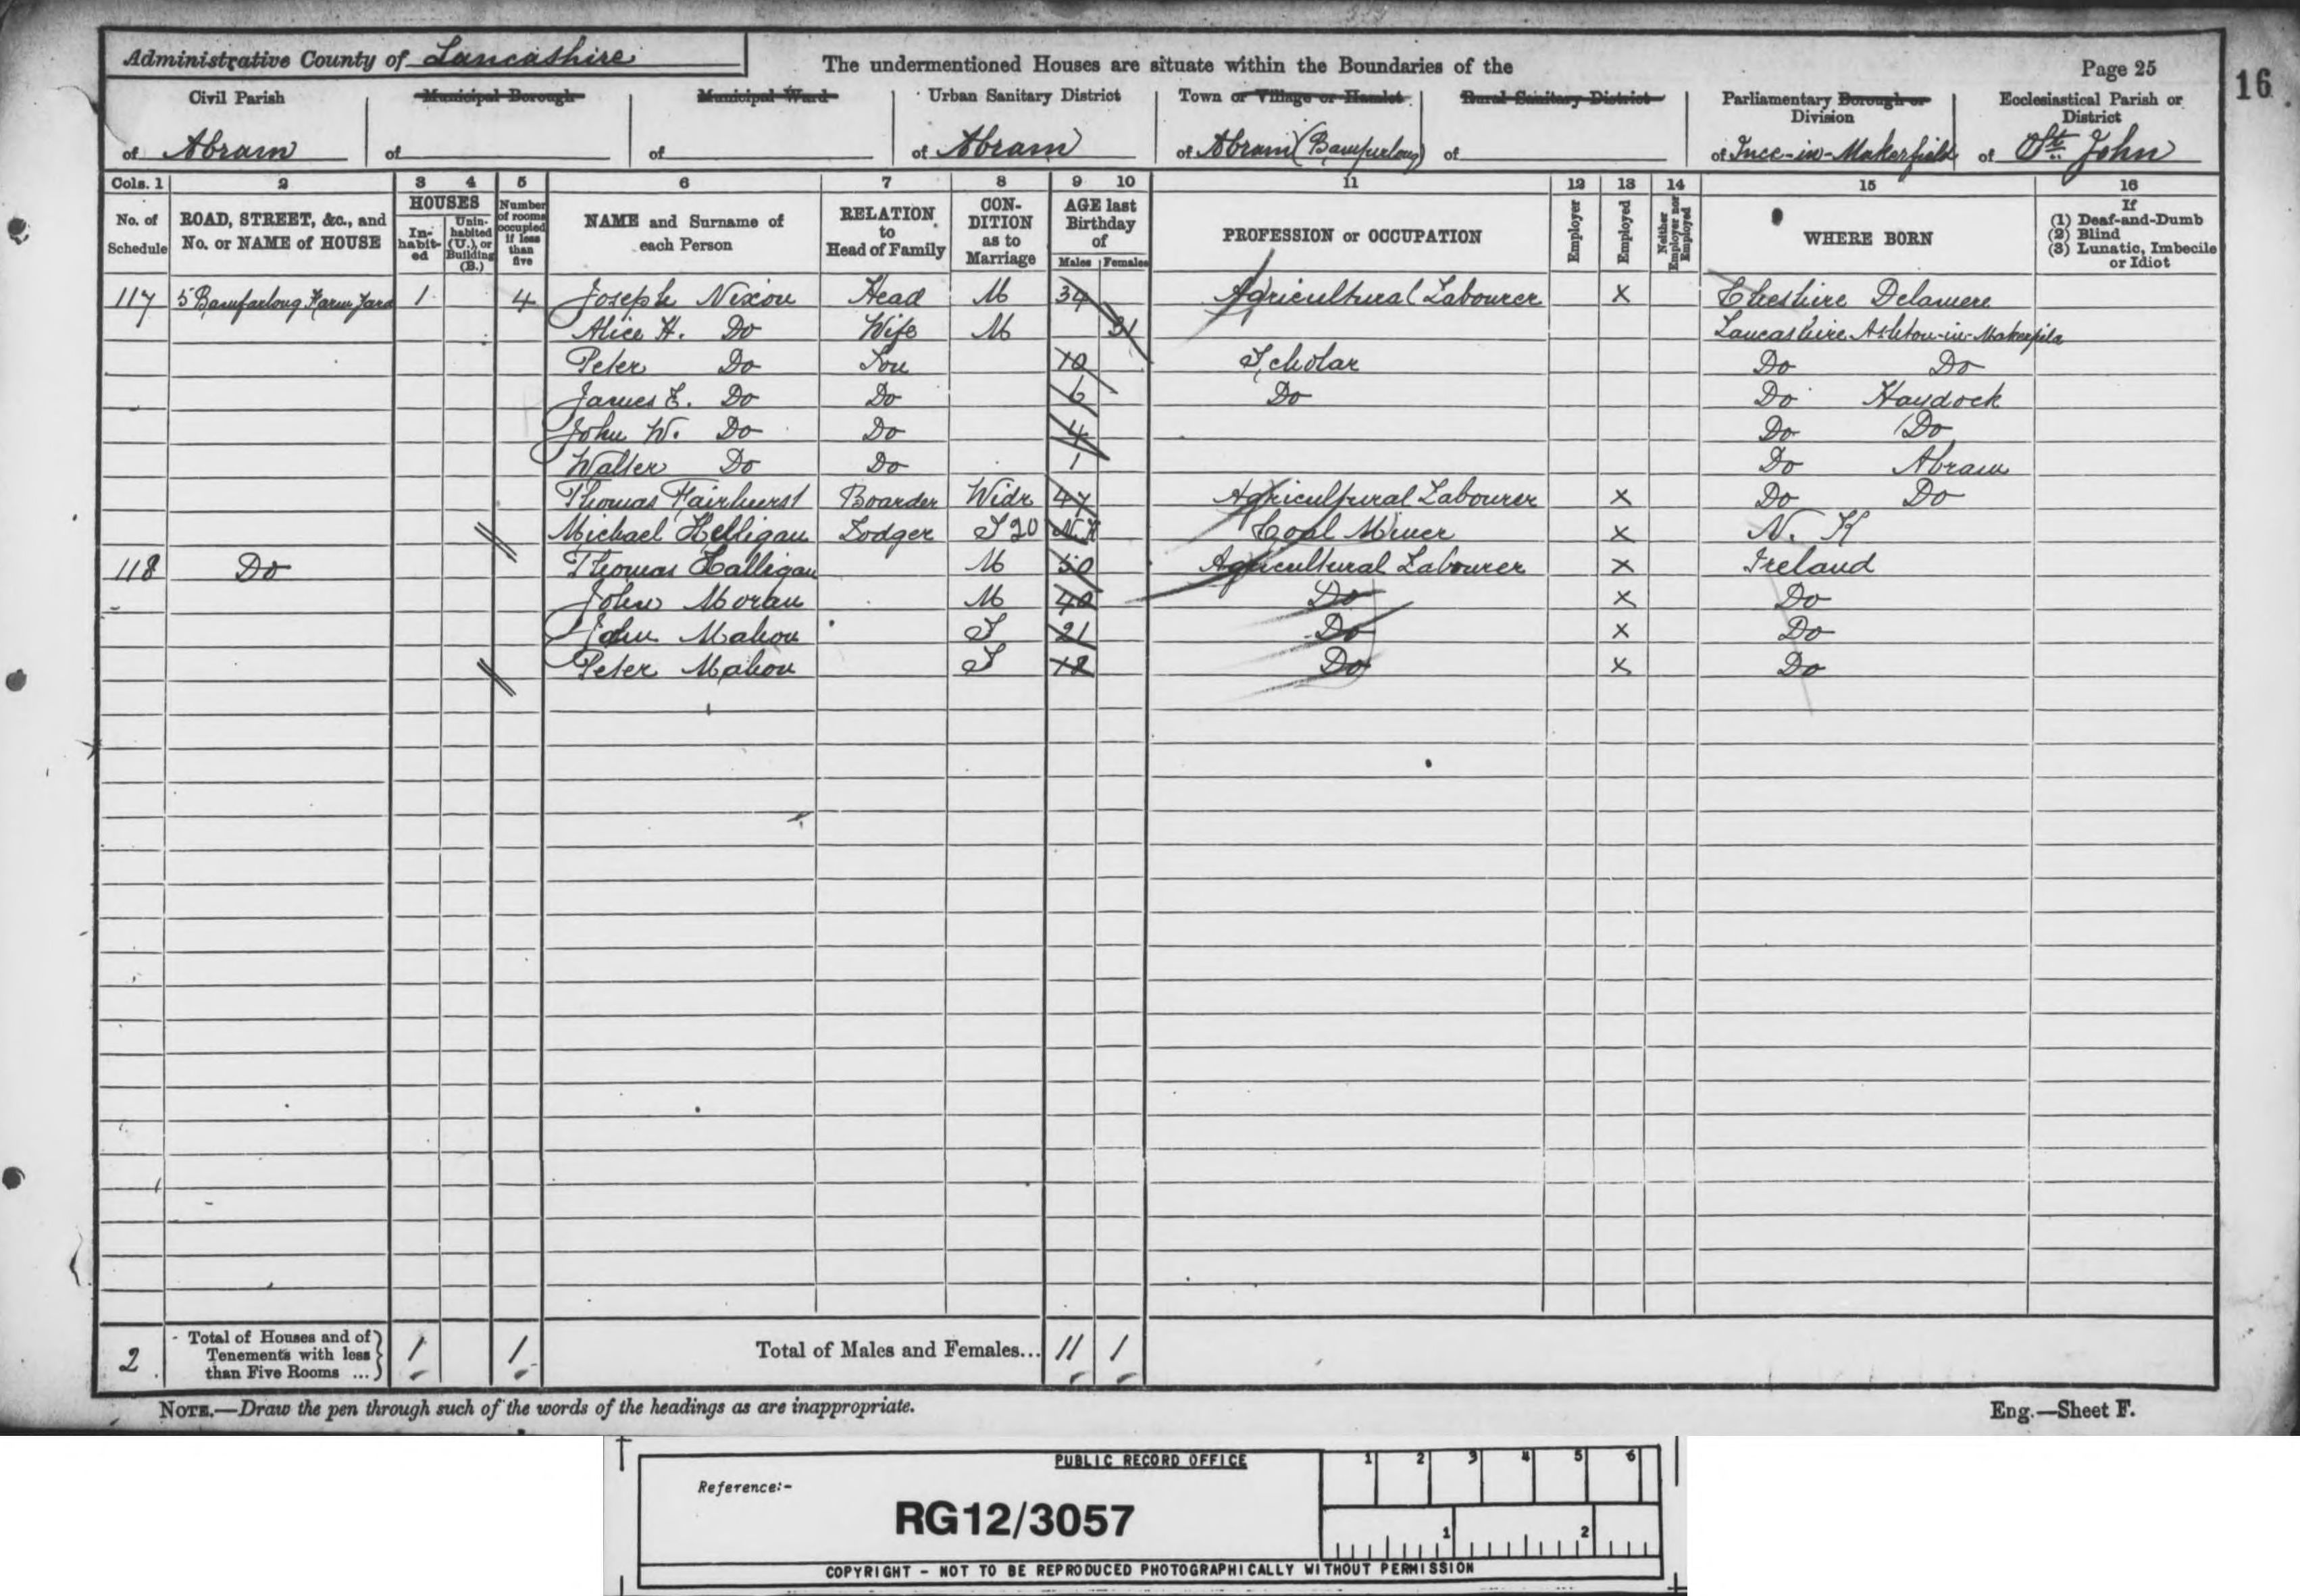 Administrative County of Lancashire
The undermentioned Houses are situate within the Boundaries of the
Page 25
16
Civil Parish of Abram
Municipal Borough of
Municipal Ward of
Urban Sanitary District of Abram
Town or Village or Hamlet of Abram (Bamfurlong)
Rural Sanitary District of
Parliamentary Borough or Division of Ince-in-Makerfield
Ecclesiastical Parish or District of St. John
Cols. 1 2 3 4 5 6 7 8 9 10 11 12 13 14 15 16
No. of Schedule
ROAD, STREET, &c., and No. or NAME of HOUSE
HOUSES
In-habit-ed
Unin-habited (U.), or Building (B.)
Number of rooms occupied if less than five
NAME and Surname of each Person
RELATION to Head of Family
CON-DITION as to Marriage
AGE last Birthday of
Males Females
PROFESSION or OCCUPATION
Employer
Employed
Neither Employer nor Employed
WHERE BORN
If (1) Deaf-and-Dumb (2) Blind (3) Lunatic, Imbecile or Idiot
117 5 Bamfurlong Farm Yard 1 4 Joseph Nixon Head M 34 Agricultural Labourer X Cheshire Delamere
Alice H. Do Wife M 31 Lancashire Ashton-in-Makerfield
Peter Do Son 10 Scholar Do Do
James E. Do Do 6 Do Do Haydock
John W. Do Do 4 Do Do
Walter Do Do 1 Do Abram
Thomas Fairhurst Boarder Widr 47 Agricultural Labourer X Do Do
Michael Helligan Lodger S 20 N.K Coal Miner X N. K
118 Do Thomas Halligan M 50 Agricultural Labourer X Ireland
John Moran M 40 Do X Do
John Mahon S 21 Do X Do
Peter Mahon S 18 Do X Do
2 Total of Houses and of Tenements with less than Five Rooms ... 1 1 Total of Males and Females... 11 1
NOTE.—Draw the pen through such of the words of the headings as are inappropriate.
Eng.—Sheet F.
PUBLIC RECORD OFFICE
1 2 3 4 5 6
Reference:-
RG12/3057
1 2
COPYRIGHT - NOT TO BE REPRODUCED PHOTOGRAPHICALLY WITHOUT PERMISSION